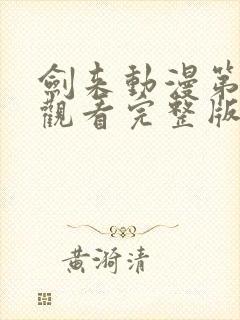 劍來動漫第
觀看完整版
黃漪清